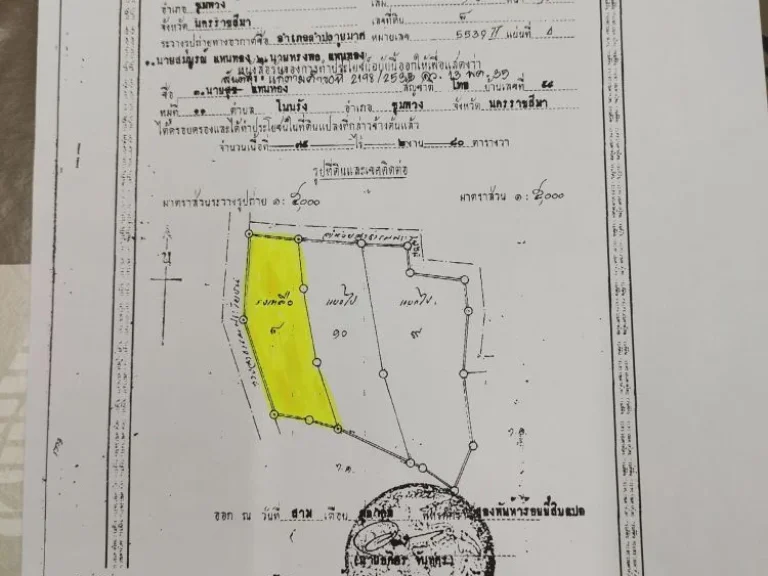 อำเภอ ชุมพวง
จังหวัด นครราชสีมา เลขที่ดิน ๕
ระวางรูปถ่ายทางอากาศชื่อ อำเภอลำปลายมาศ หมายเลข 5539 II แผ่นที่ ๘
๑.นายสมบูรณ์ แทนทอง, ๒.นายทรงพล แทนทอง
หนังสือรับรองการทำประโยชน์ฉบับนี้ออกให้เพื่อแสดงว่า
ชื่อ ๑.นายสุข แทนทอง สัญชาติ ไทย บ้านเลขที่ ๕๘
หมู่ที่ ๑๑ ตำบล โนนรัง อำเภอ ชุมพวง จังหวัด นครราชสีมา
ได้ครอบครองและได้ทำประโยชน์ในที่ดินแปลงที่กล่าวข้างต้นแล้ว
จำนวนเนื้อที่ ๗๕ ไร่ ๒ งาน ๘๐ ตารางวา
รูปที่ดินและเขตติดต่อ
มาตราส่วนระวางรูปถ่าย ๑: ๕,๐๐๐ มาตราส่วน ๑: ๕,๐๐๐
น
คงเหลือ แยกไป แยกไป
๕ ๑๐ ๙
ว.ค.
ว.ค.
ออก ณ วันที่ สาม เดือน ตุลาคม พุทธศักราช สองพันห้าร้อยยี่สิบแปด